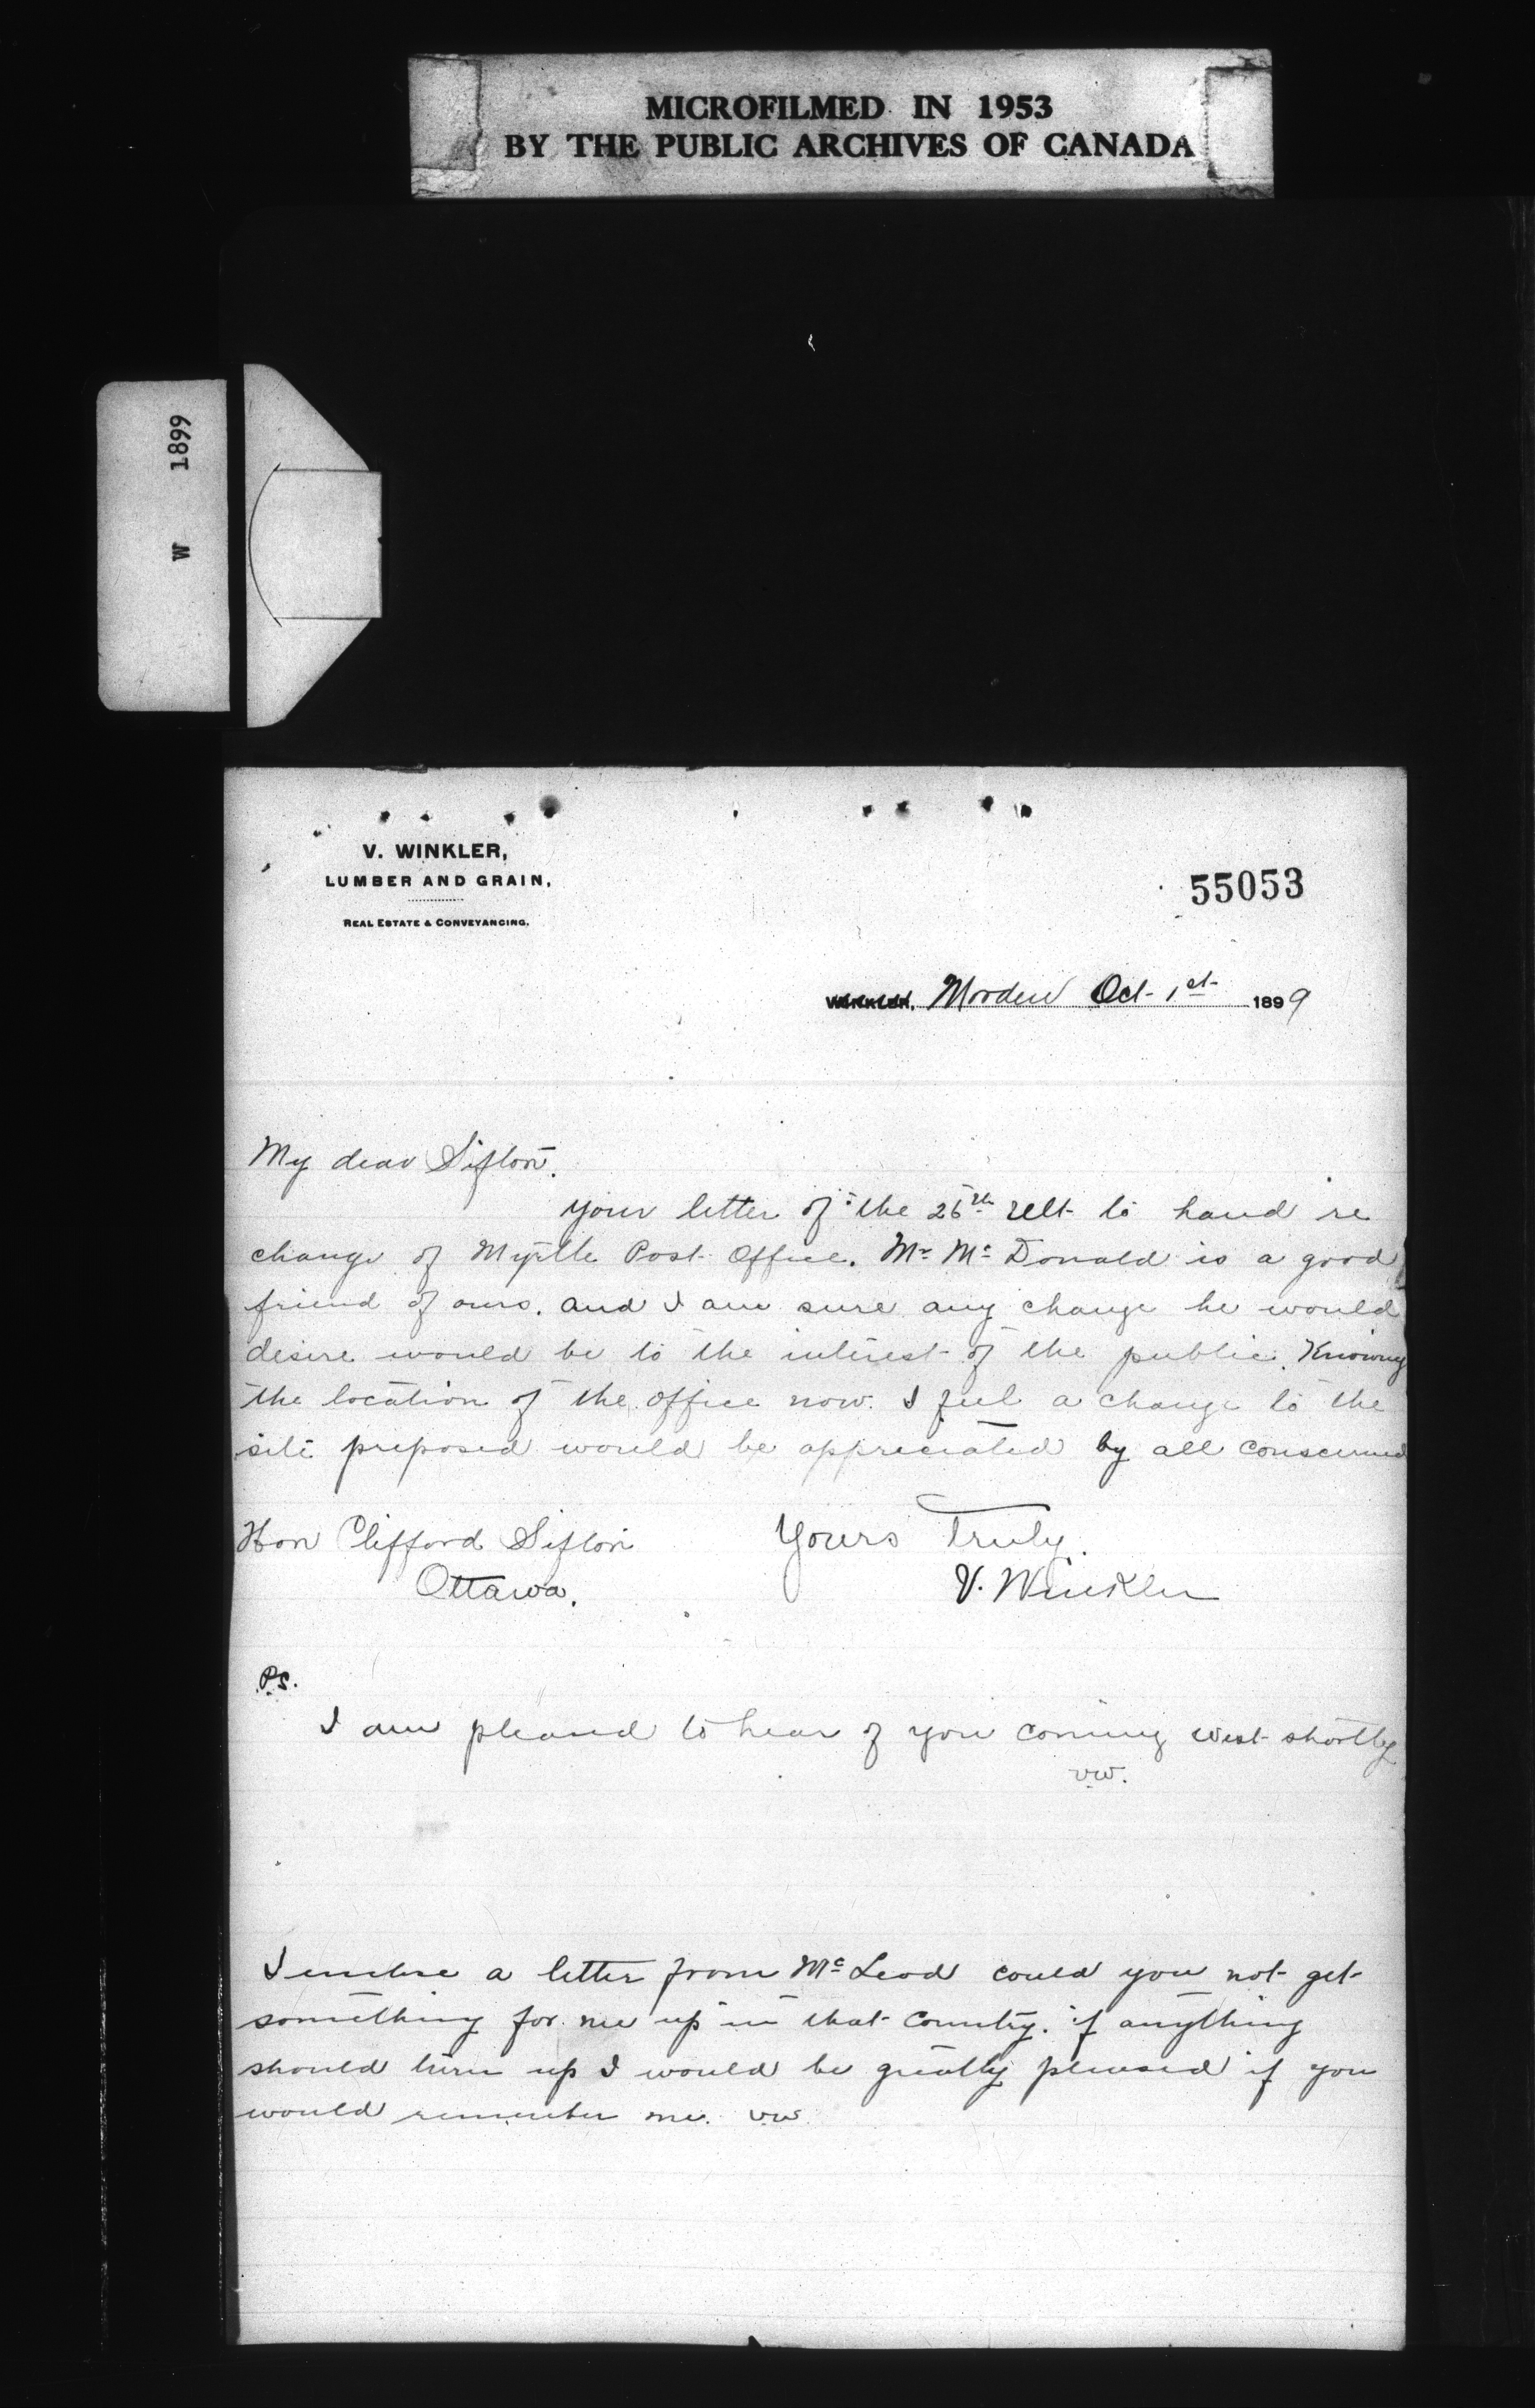 MICROFILMED IN 1953
BY THE PUBLIC ARCHIVES OF CANADA
W 1899
V. WINKLER,
LUMBER AND GRAIN,
REAL ESTATE & CONVEYANCING.
55053
WINKLER, Morden Oct 1st 1899
My dear Sifton.
Your letter of the 26th ult to hand re
change of Myrtle Post Office. Mr McDonald is a good
friend of ours. and I am sure any change he would
desire would be to the interest of the public. Knowing
the location of the office now. I feel a change to the
site proposed would be appreciated by all concerned
Hon Clifford Sifton
Ottawa.
Yours Truly.
V. Winkler
P.S.
I am pleased to hear of you coming west shortly
VW.
I enclose a letter from McLeod could you not get
something for me up in that Country. if anything
should turn up I would be greatly pleased if you
would remember me. VW